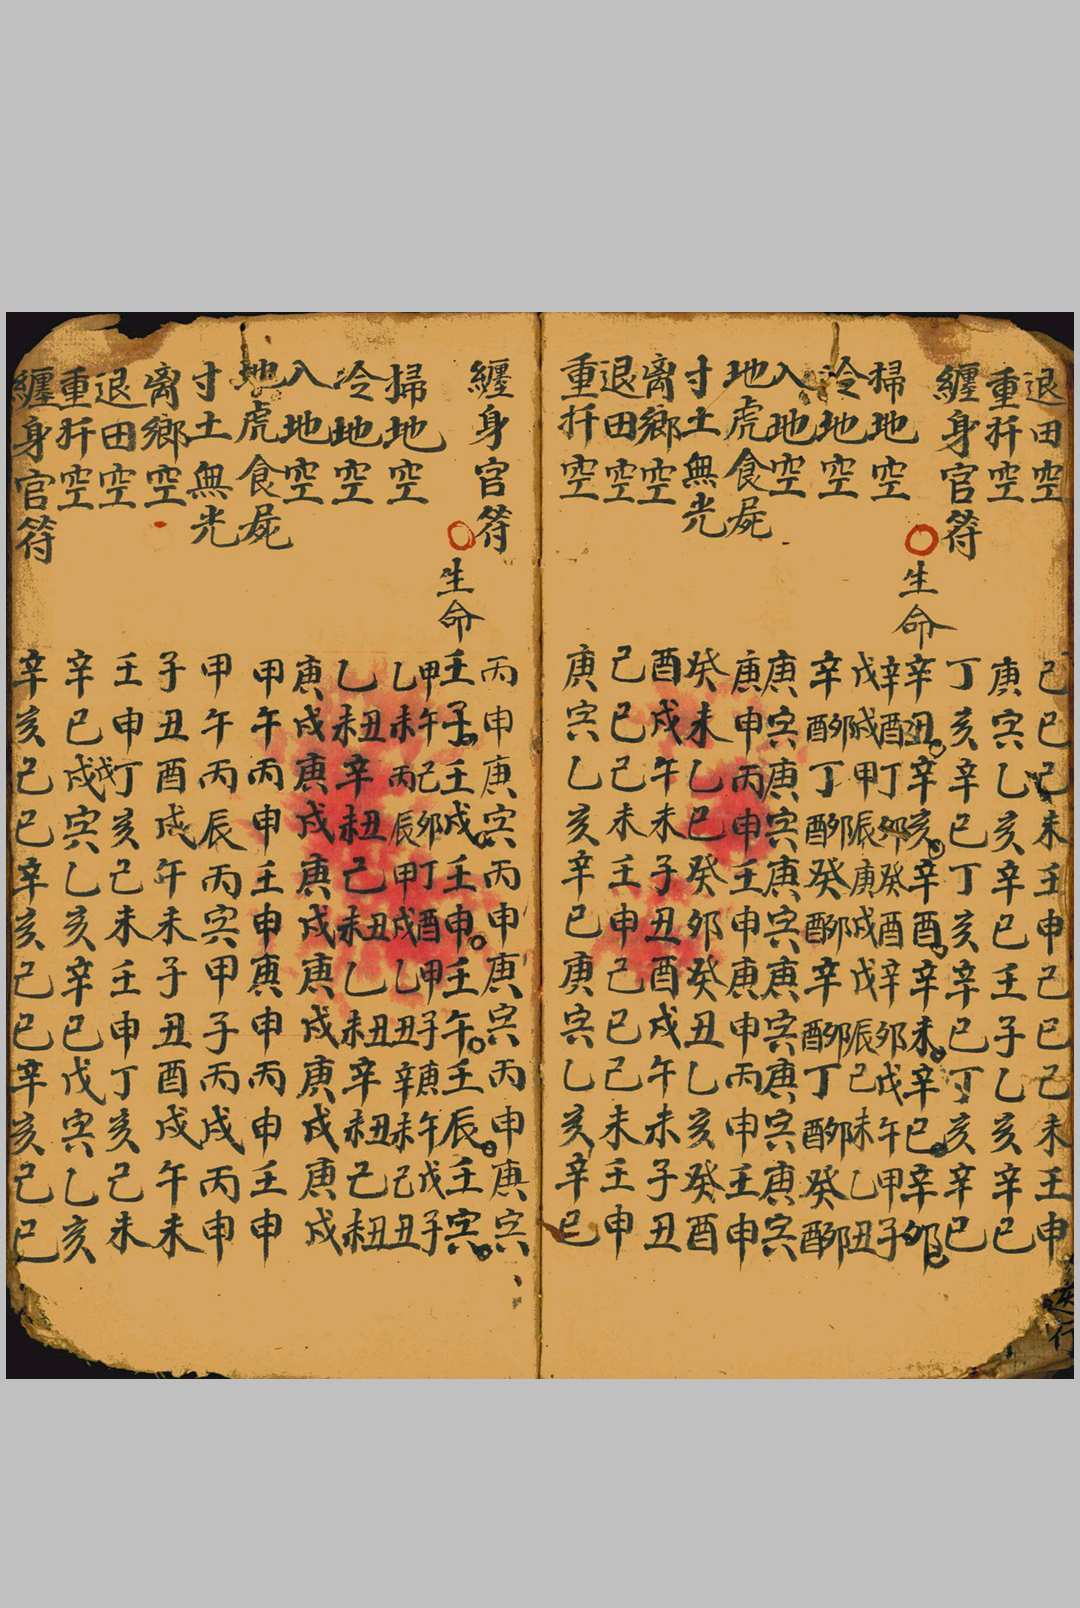 退田空 己巳己未壬申己巳己未壬申
重扦空 庚寅乙亥辛巳壬子乙亥辛巳
纏身官符 丁亥辛巳丁亥辛巳丁亥辛巳
生命 辛丑辛亥辛酉辛未辛巳辛卯
掃地空 辛酉丁卯癸酉辛卯戊午甲子
戊戌甲辰庚戌戊辰己未乙丑
冷地空 辛卯酉丁卯酉癸卯酉辛卯酉丁卯酉癸卯酉
入地空 庚寅庚寅庚寅庚寅庚寅庚寅
地虎食屍 庚申丙申壬申庚申丙申壬申
寸土無光 癸未乙巳癸卯癸丑乙亥癸酉
离鄉空 酉戌午未子丑酉戌午未子丑
退田空 己巳己未壬申己巳己未壬申
重扦空 庚寅乙亥辛巳庚寅乙亥辛巳
纏身官符 丙申庚寅丙申庚寅丙申庚寅
生命 壬子壬戌壬申壬午壬辰壬寅
掃地空 甲午己卯丁酉甲子庚午戊子
乙未丙辰甲戌乙丑辛未己丑
冷地空 乙丑未辛丑未己丑未乙丑未辛丑未己丑未
入地空 庚戌庚戌庚戌庚戌庚戌庚戌
地虎食屍 甲午丙申壬申庚申丙申壬申
寸土無光 甲午丙辰丙寅甲子丙戌丙申
离鄉空 子丑酉戌午未子丑酉戌午未
退田空 壬申丁亥己未壬申丁亥己未
重扦空 辛巳戊寅乙亥辛巳戊寅乙亥
纏身官符 辛亥己巳辛亥己巳辛亥己巳